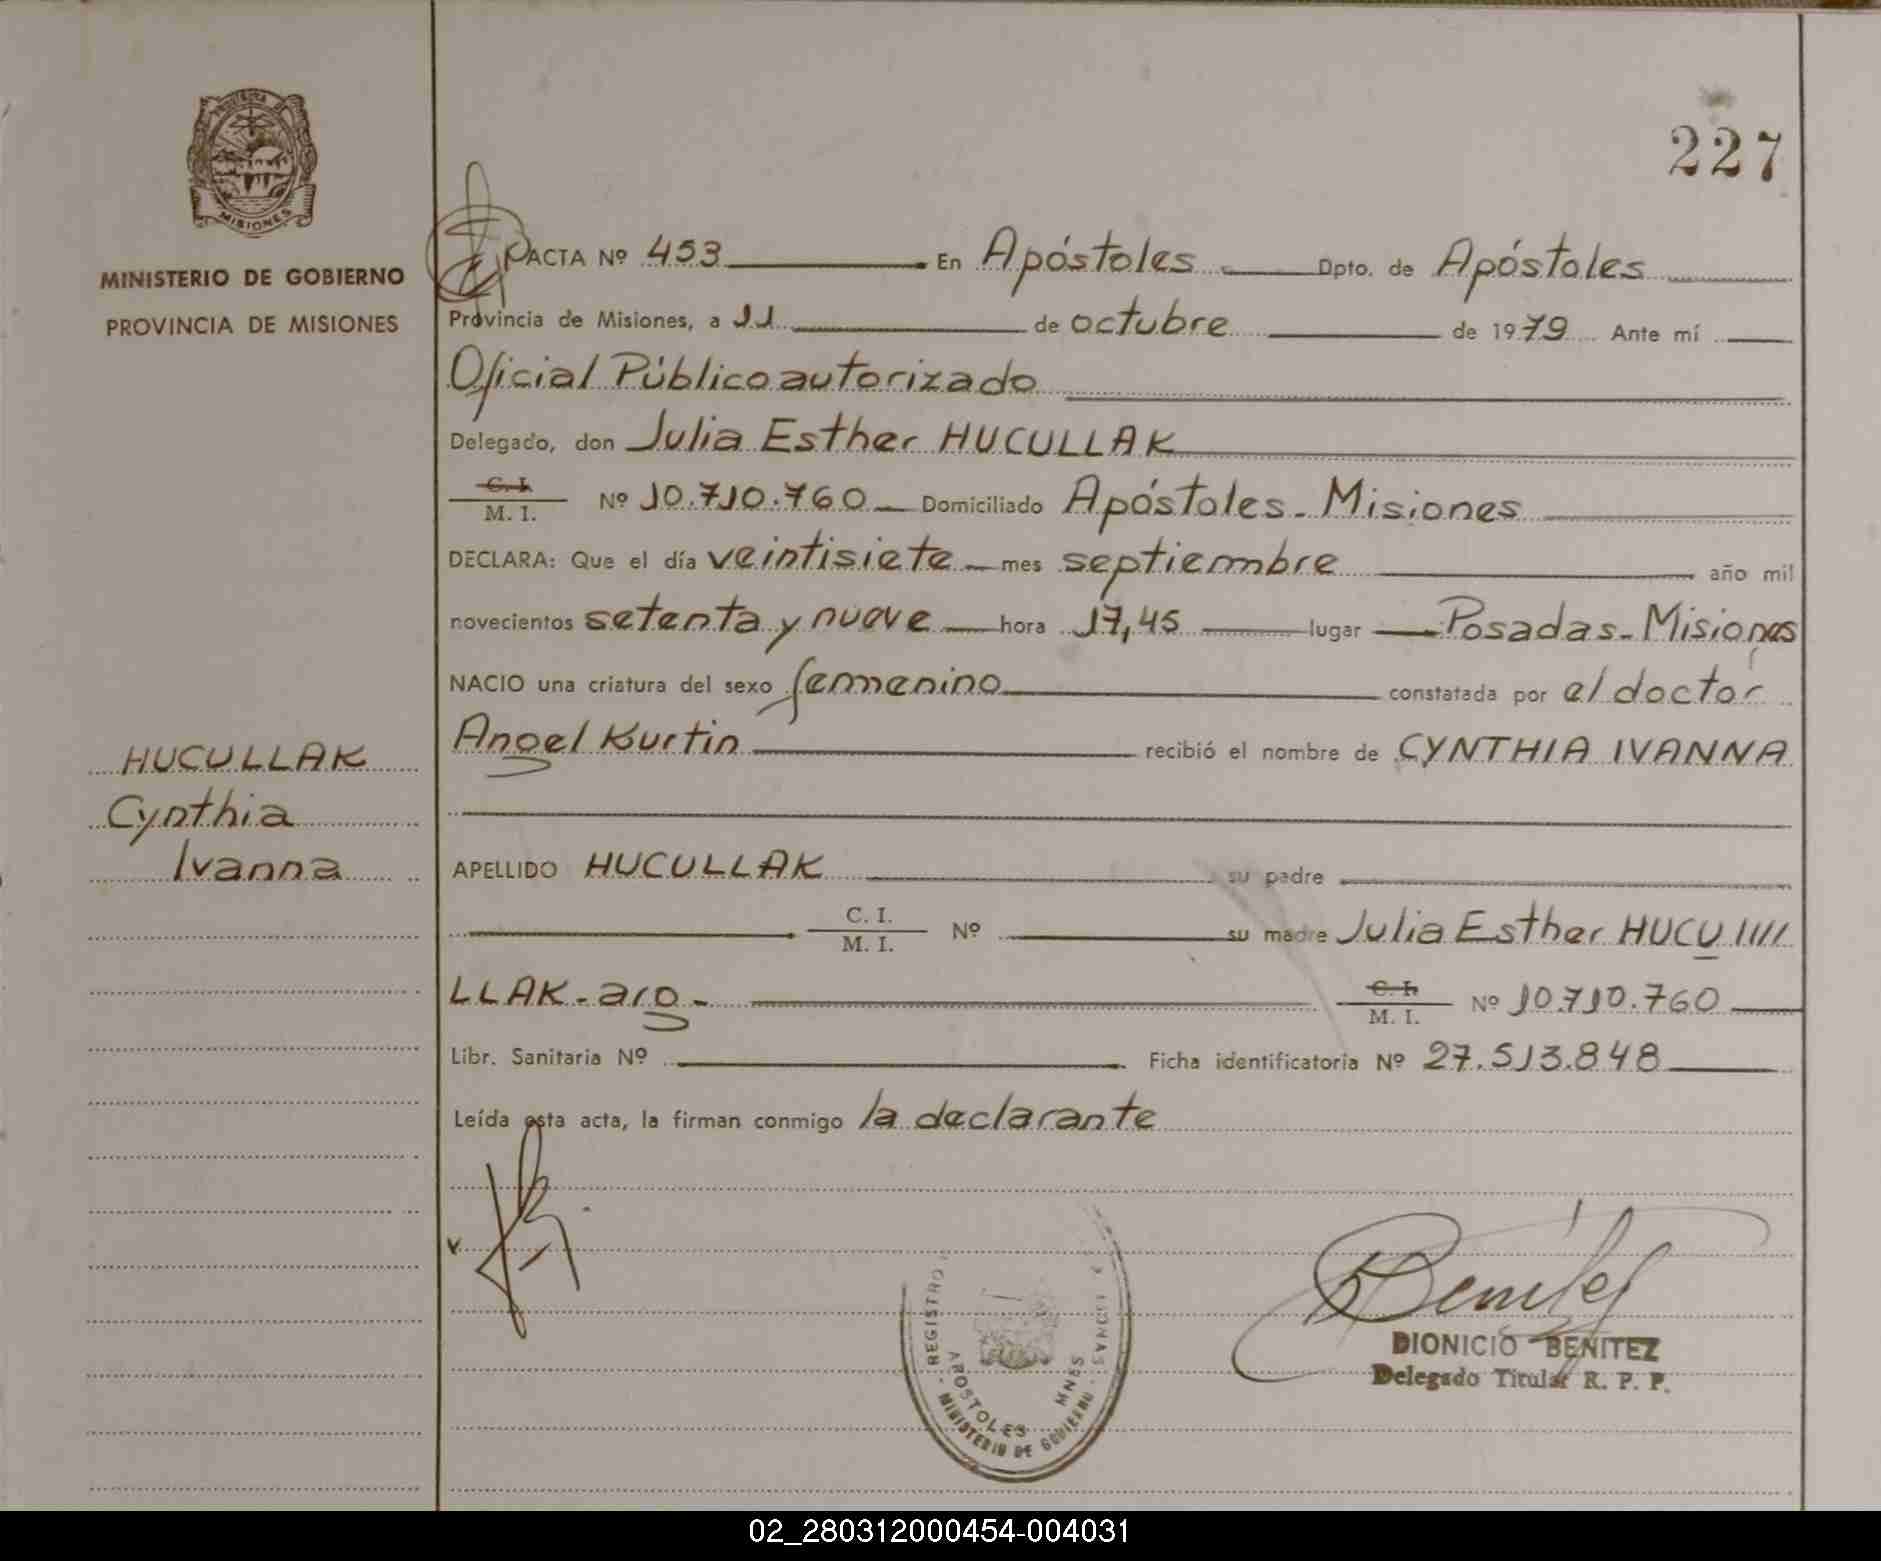 227
PROVINCIA DE
MISIONES
MINISTERIO DE GOBIERNO
PROVINCIA DE MISIONES
ACTA Nº 453 En Apóstoles Dpto. de Apóstoles
Provincia de Misiones, a 11 de octubre de 1979 Ante mí
Oficial Público autorizado
Delegado, don Julia Esther HUCULLAK
C. I.
M. I. Nº 10.710.760 Domiciliado Apóstoles - Misiones
DECLARA: Que el día veintisiete mes septiembre año mil
novecientos setenta y nueve hora 17,45 lugar Posadas - Misiones
NACIO una criatura del sexo femenino constatada por el doctor
Angel Kurtin recibió el nombre de CYNTHIA IVANNA
HUCULLAK
Cynthia
Ivanna
APELLIDO HUCULLAK su padre
C. I.
M. I. Nº su madre Julia Esther HUCU
LLAK - arg - C. I.
M. I. Nº 10.710.760
Libr. Sanitaria Nº Ficha identificatoria Nº 27.513.848
Leída esta acta, la firman conmigo la declarante
Benitez
DIONICIO BENITEZ
Delegado Titular R. P. P.
REGISTRO
APOSTOLES MNES
MINISTERIO DE GOBIERNO
02_280312000454-004031